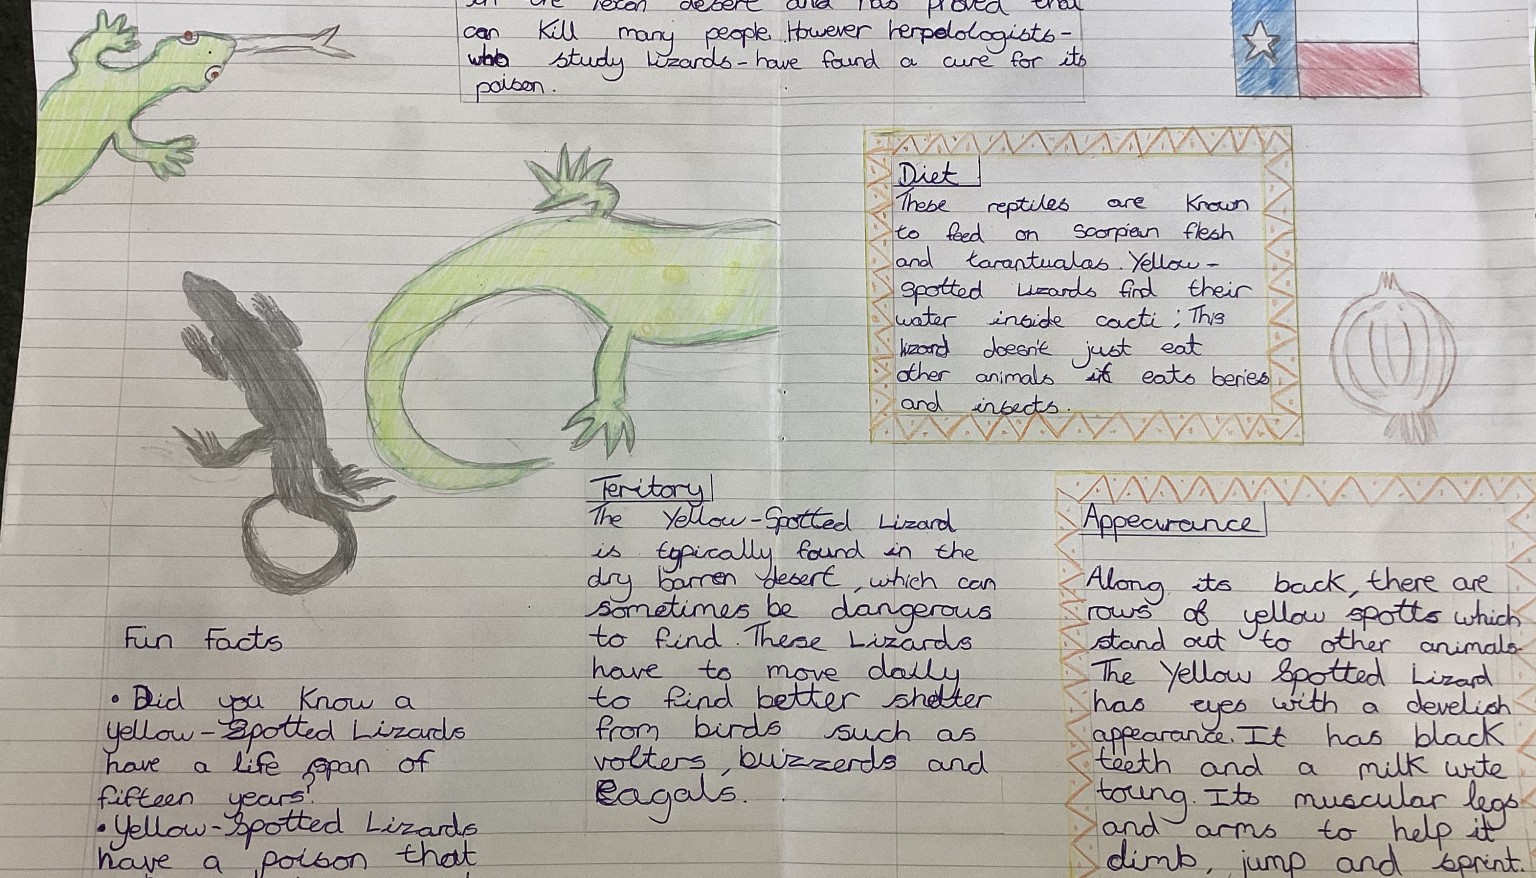 in the Texan desert and has proved that
can Kill many people. However herpolologists-
who study Lizards - have found a cure for its
poison.
Diet
These reptiles are Known
to feed on Scorpian flesh
and tarantualas. Yellow-
Spotted Lizards find their
water inside cacti ; This
lizard doesn't just eat
other animals it eats beries
and insects.
Teritory
The Yellow-Spotted Lizard
is typically found in the
dry barren desert, which can
sometimes be dangerous
to find. These Lizards
have to move daily
to find better shelter
from birds such as
volters, buzzerds and
Eagals.
Appearance
Along its back, there are
rows of yellow spotts which
stand out to other animals.
The Yellow Spotted Lizard
has eyes with a develish
appearance. It has black
teeth and a milk wite
toung. Its muscular legs
and arms to help it
climb, jump and sprint.
Fun Facts
• Did you Know a
Yellow-Spotted Lizards
have a life span of
fifteen years!
• Yellow-Spotted Lizards
have a poison that